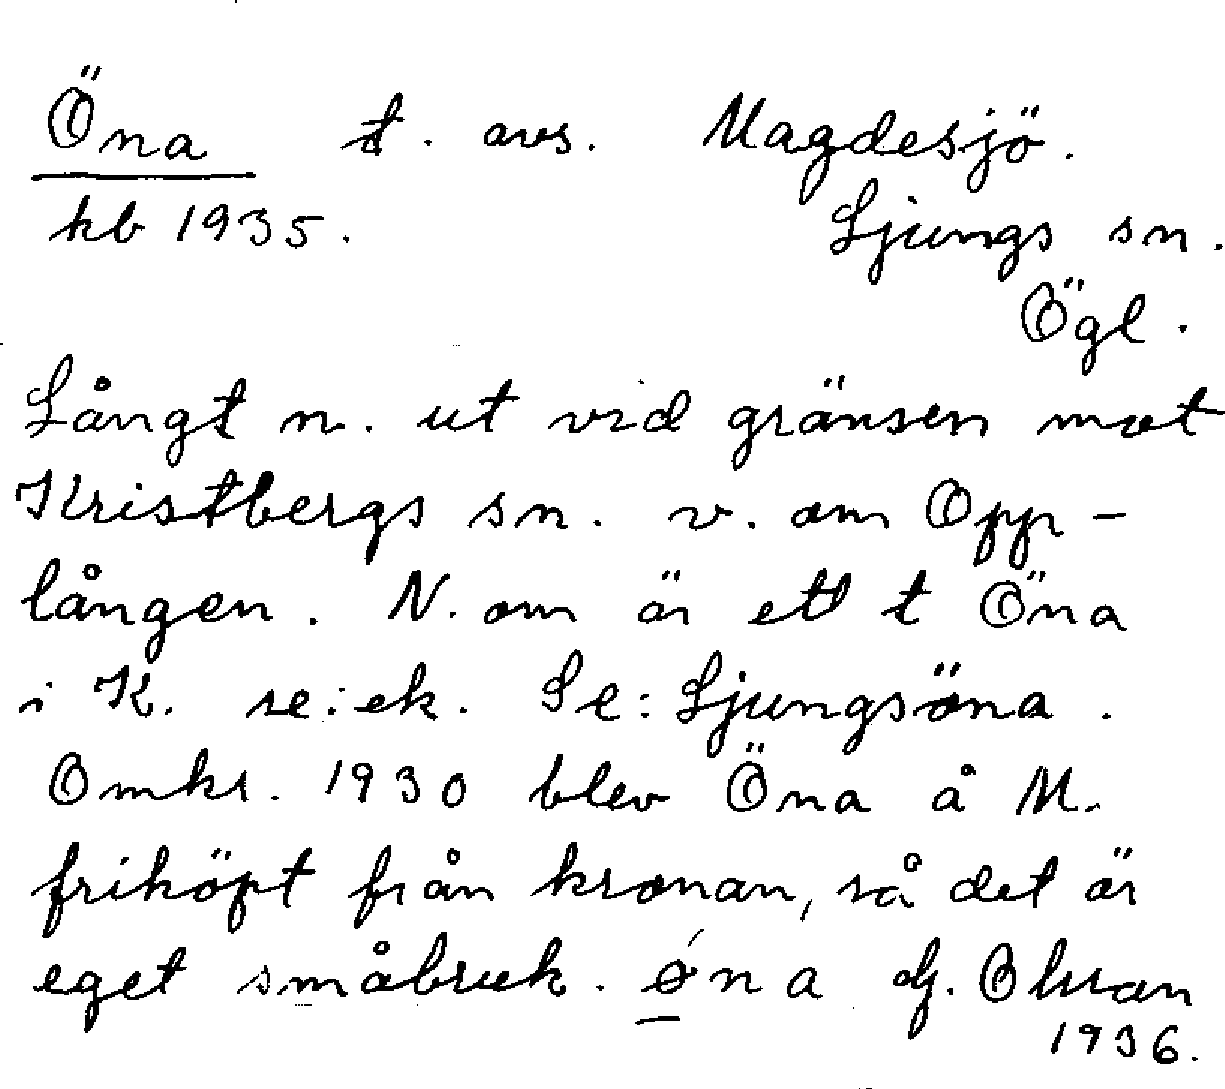 Öna t. avs. Magdesjö.
kb 1935. Ljungs sn.
Ögl.
Långt n. ut vid gränsen mot
Kristbergs sn. v. om Opp-
lången. N. om är ett t Öna
i K. se: ek. Se: Ljungsöna.
Omkr. 1930 blev Öna å M.
friköpt från kronan, så det är
eget småbruk. ǿna Hj. Olsson
1936.